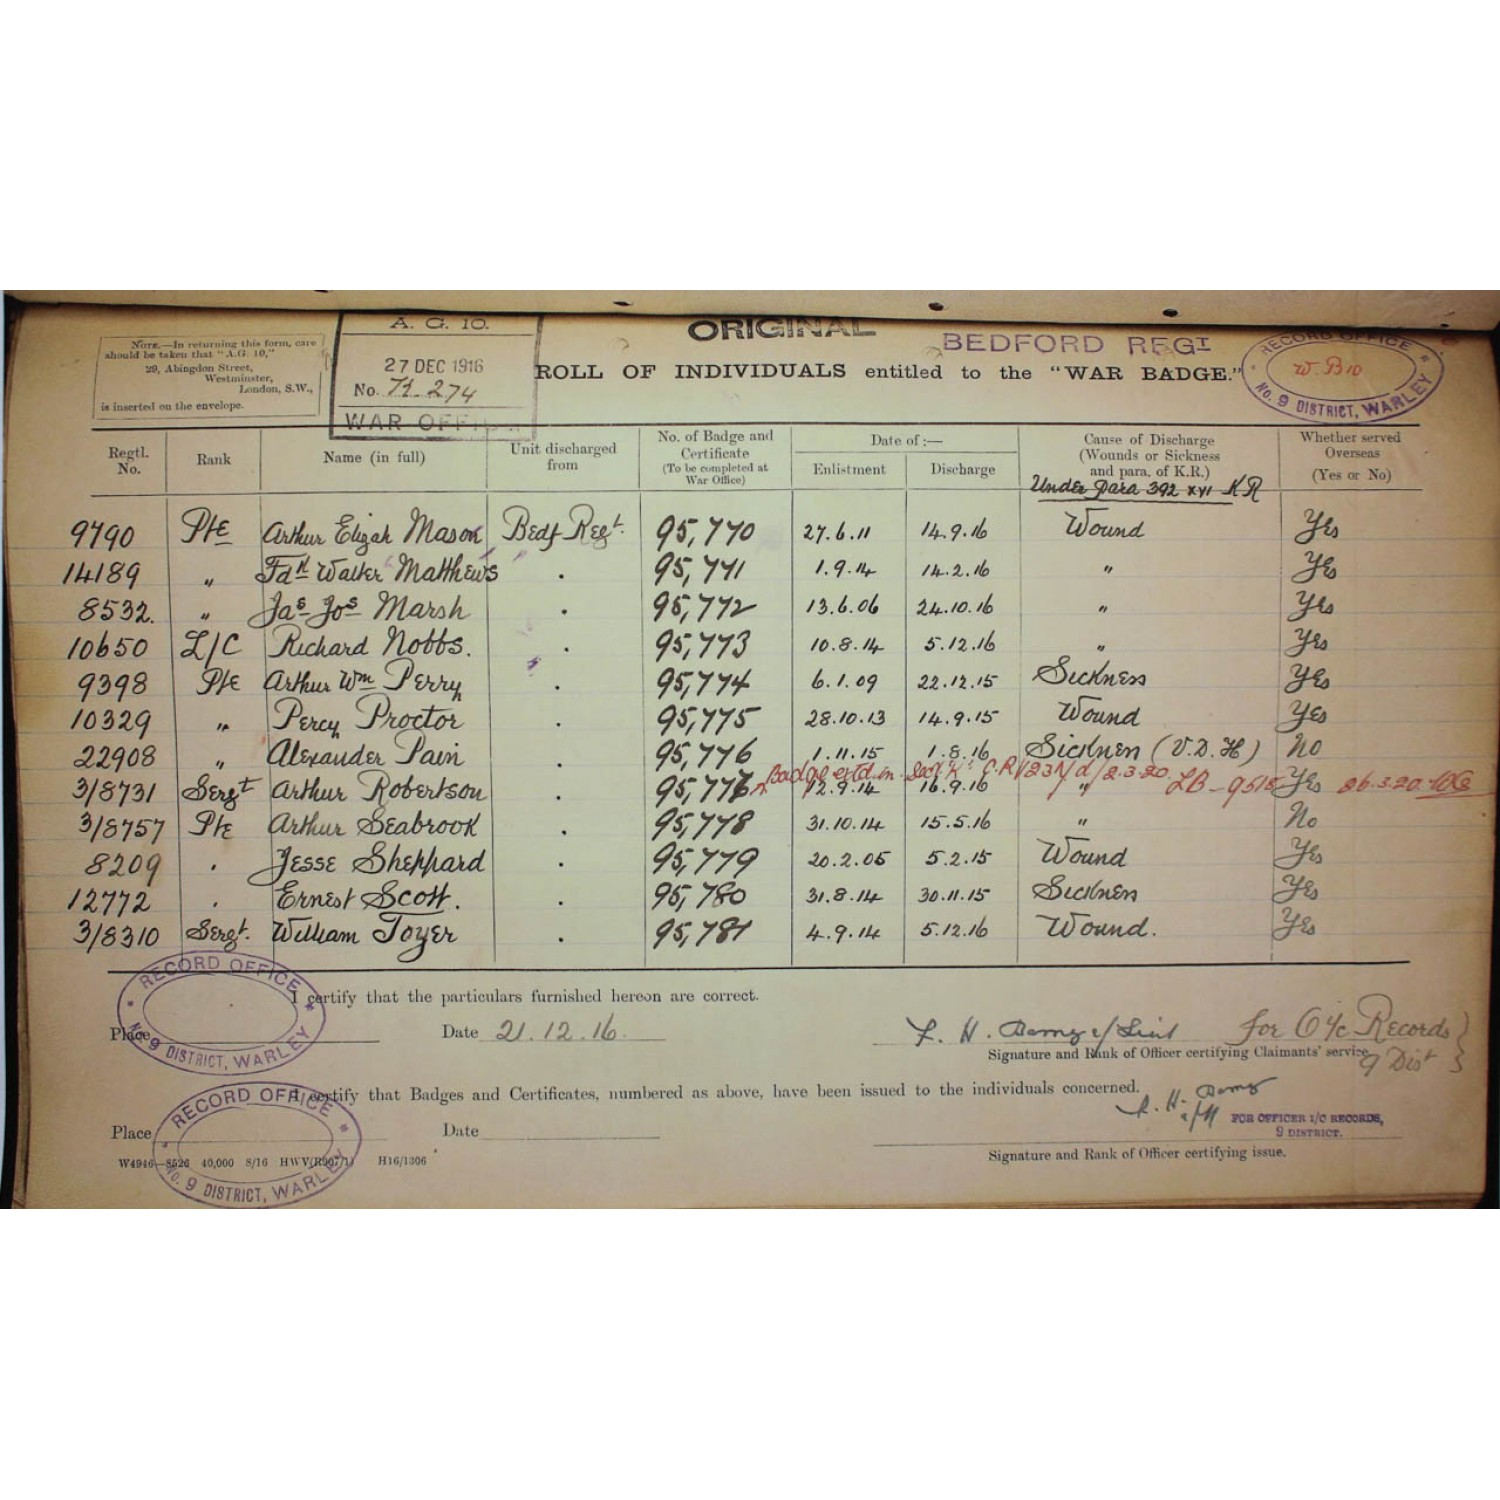 A. G. 10.
27 DEC 1916
No. 274
WAR OFFI
NOTE.—In returning this form, care
should be taken that "A.G. 10,"
29, Abingdon Street,
Westminster,
London, S.W.,
is inserted on the envelope.
ORIGINAL
BEDFORD REGT
ROLL OF INDIVIDUALS entitled to the "WAR BADGE."
RECORD OFFICE
W.B10
No. 9 DISTRICT, WARLEY
Regtl. No. Rank Name (in full) Unit discharged from No. of Badge and Certificate (To be completed at War Office) Date of :— Enlistment Discharge Cause of Discharge (Wounds or Sickness and para. of K.R.) Whether served Overseas (Yes or No)
Under Para 392 XVI KR
9790 Pte Arthur Elizah Mason Bedf Regt. 95,770 27.6.11 14.9.16 Wound Yes
14189 " Fdk Walter Matthews . 95,771 1.9.14 14.2.16 " Yes
8532. " Jas Jos Marsh . 95,772 13.6.06 24.10.16 " Yes
10650 L/C Richard Nobbs. . 95,773 10.8.14 5.12.16 " Yes
9398 Pte Arthur Wm Perry . 95,774 6.1.09 22.12.15 Sickness Yes
10329 " Percy Proctor . 95,775 28.10.13 14.9.15 Wound Yes
22908 " Alexander Pain . 95,776 1.11.15 1.8.16 Sickness (V.D.H) No
Badge 2.3.20. 26.3.20.
3/8731 Sergt Arthur Robertson . 95,777 12.9.14 16.9.16 " Yes
3/8757 Pte Arthur Seabrook . 95,778 31.10.14 15.5.16 " No
8209 . Jesse Sheppard . 95,779 20.2.05 5.2.15 Wound Yes
12772 . Ernest Scott. . 95,780 31.8.14 30.11.15 Sickness Yes
3/8310 Sergt. William Toyer . 95,781 4.9.14 5.12.16 Wound. Yes
RECORD OFFICE
No. 9 DISTRICT, WARLEY
I certify that the particulars furnished hereon are correct.
Place Date 21.12.16. for O i/c Records
Signature and Rank of Officer certifying Claimants' service
9 Dist
I certify that Badges and Certificates, numbered as above, have been issued to the individuals concerned.
RECORD OFFICE
No. 9 DISTRICT, WARLEY
FOR OFFICER I/C RECORDS,
9 DISTRICT.
Place Date
Signature and Rank of Officer certifying issue.
W4946—8526 40,000 8/16 HWV(R907/1) H16/1306